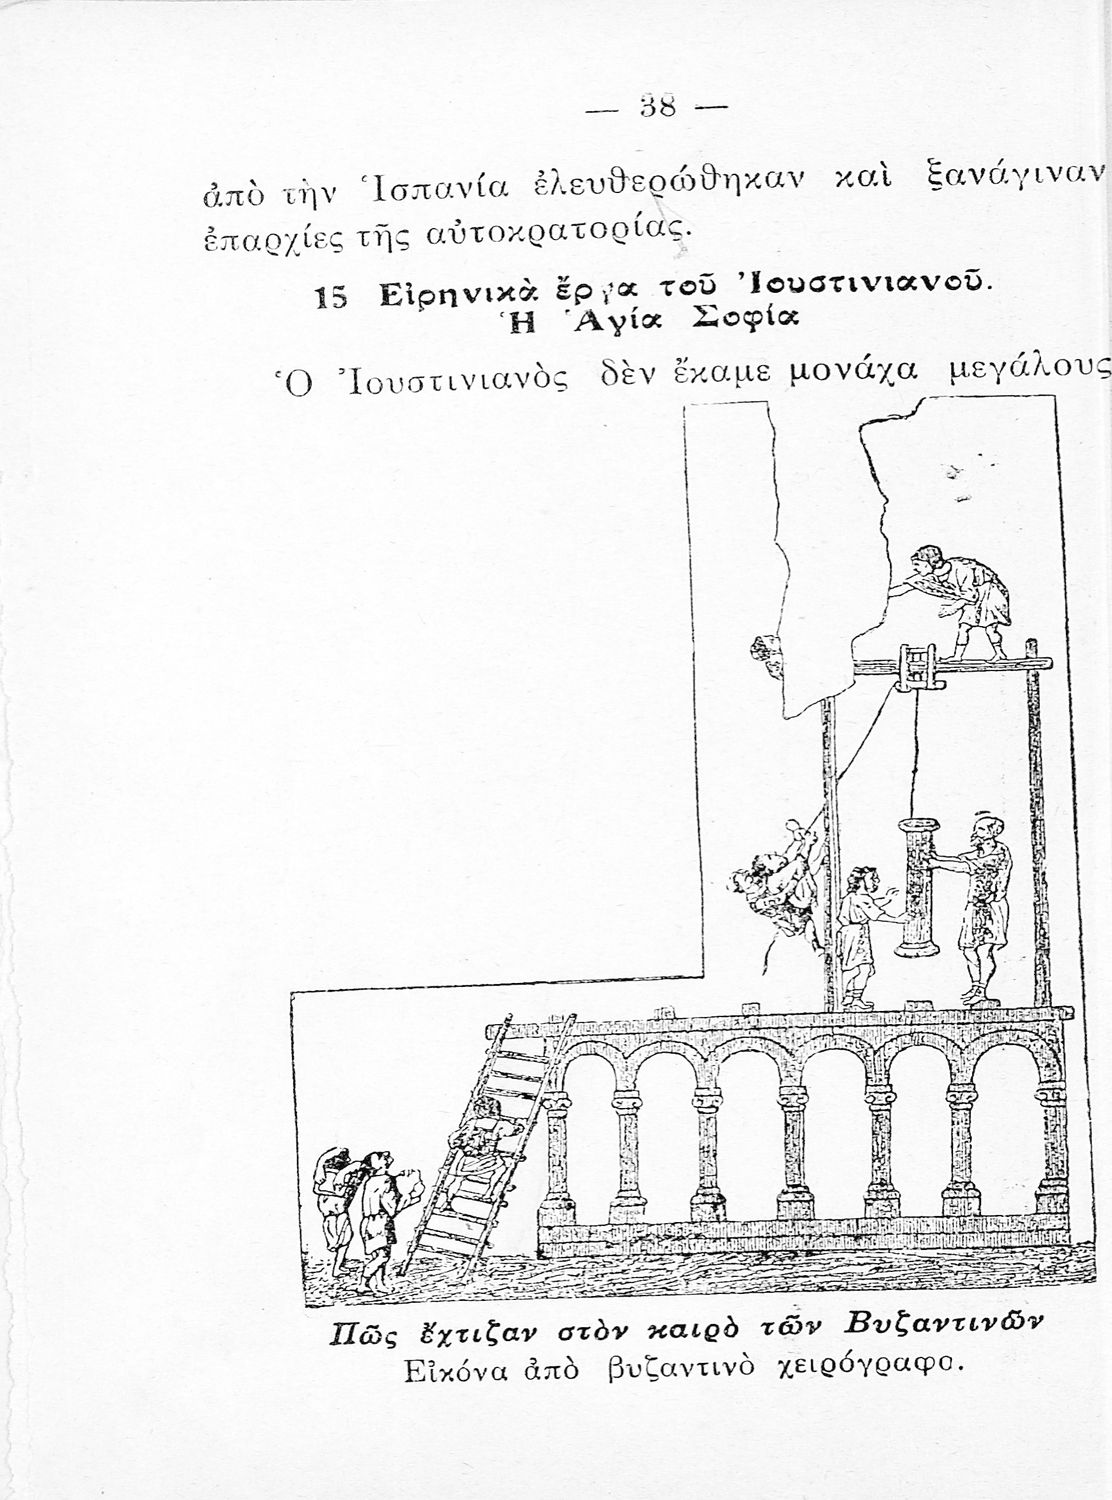 — 38 —
ἀπὸ τὴν Ἱσπανία ἐλευθερώθηκαν καὶ ξανάγιναν
ἐπαρχίες τῆς αὐτοκρατορίας.
15 Εἰρηνικὰ ἔργα τοῦ Ἰουστινιανοῦ.
Ἡ Ἁγία Σοφία
Ὁ Ἰουστινιανὸς δὲν ἔκαμε μονάχα μεγάλους
Πῶς ἔχτιζαν στὸν καιρὸ τῶν Βυζαντινῶν
Εἰκόνα ἀπὸ βυζαντινὸ χειρόγραφο.